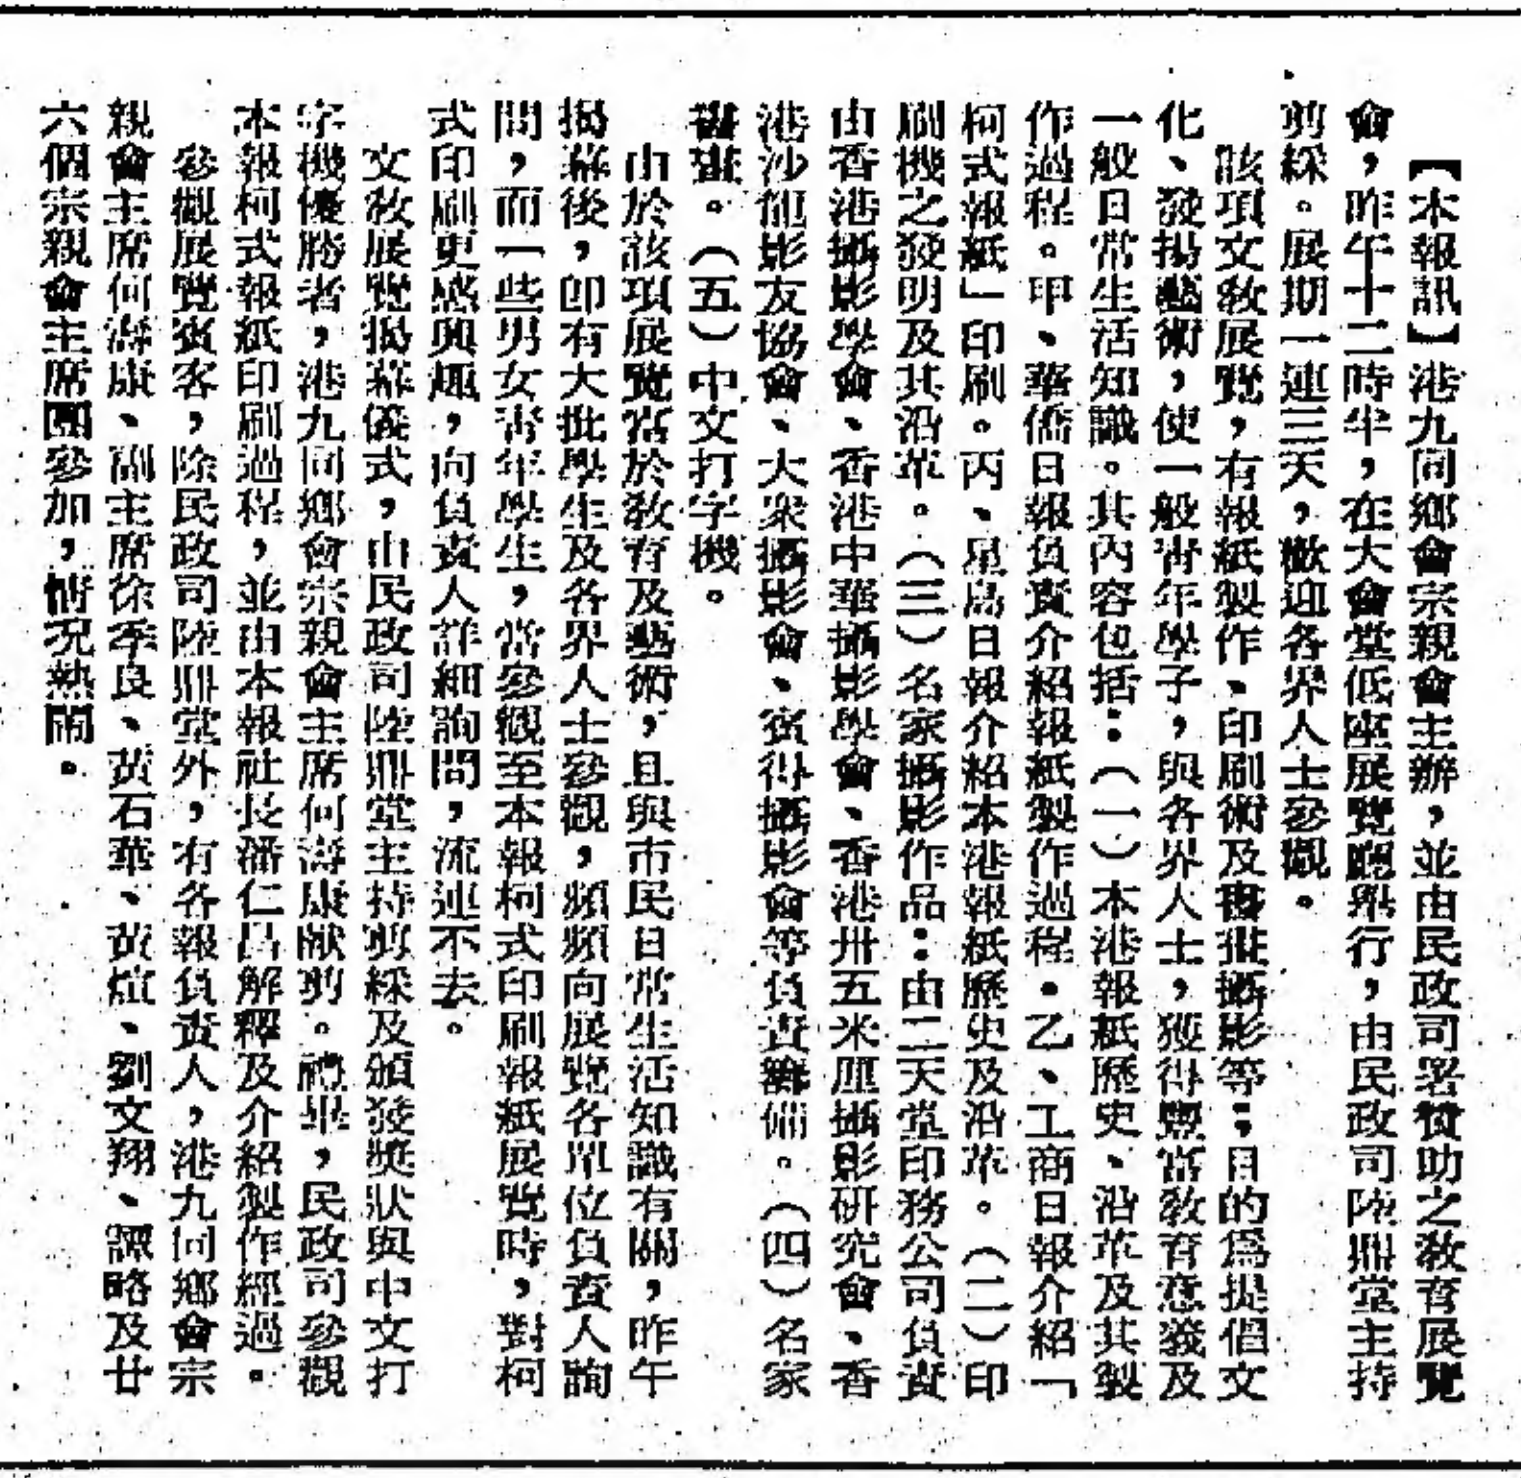 【本報訊】港九同鄉會宗親會主辦，並由民政司署贊助之敎育展覽
會，昨午十二時半，在大會堂低座展覽廳舉行，由民政司陸鼎堂主持
剪綵。展期一連三天，歡迎各界人士參觀。
該項文敎展覽，有報紙製作、印刷術及書畫攝影等；目的爲提倡文
化、發揚藝術，使一般靑年學子，與各界人士，獲得豐富敎育意義及
一般日常生活知識。其內容包括：（一）本港報紙歷史、沿革及其製
作過程。甲、華僑日報負責介紹報紙製作過程。乙、工商日報介紹「
柯式報紙」印刷。丙、星島日報介紹本港報紙歷史及沿革。（二）印
刷機之發明及其沿革。（三）名家攝影作品：由二天堂印務公司負責
由香港攝影學會、香港中華攝影學會、香港卅五米厘攝影研究會、香
港沙龍影友協會、大衆攝影會、賓得攝影會等負責籌備。（四）名家
書畫。（五）中文打字機。
由於該項展覽富於敎育及藝術，且與市民日常生活知識有關，昨午
揭幕後，卽有大批學生及各界人士參觀，頻頻向展覽各單位負責人詢
問，而一些男女靑年學生，當參觀至本報柯式印刷報紙展覽時，對柯
式印刷更感興趣，向負責人詳細詢問，流連不去。
文敎展覽揭幕儀式，由民政司陸鼎堂主持剪綵及頒發獎狀與中文打
字機優勝者，港九同鄉會宗親會主席何濤康獻剪。禮畢，民政司參觀
本報柯式報紙印刷過程，並由本報社長潘仁昌解釋及介紹製作經過。
參觀展覽賓客，除民政司陸鼎堂外，有各報負責人，港九同鄉會宗
親會主席何濤康、副主席徐季良、黃石華、黃煊、劉文翔、譚略及廿
六個宗親會主席團參加，情况熱鬧。